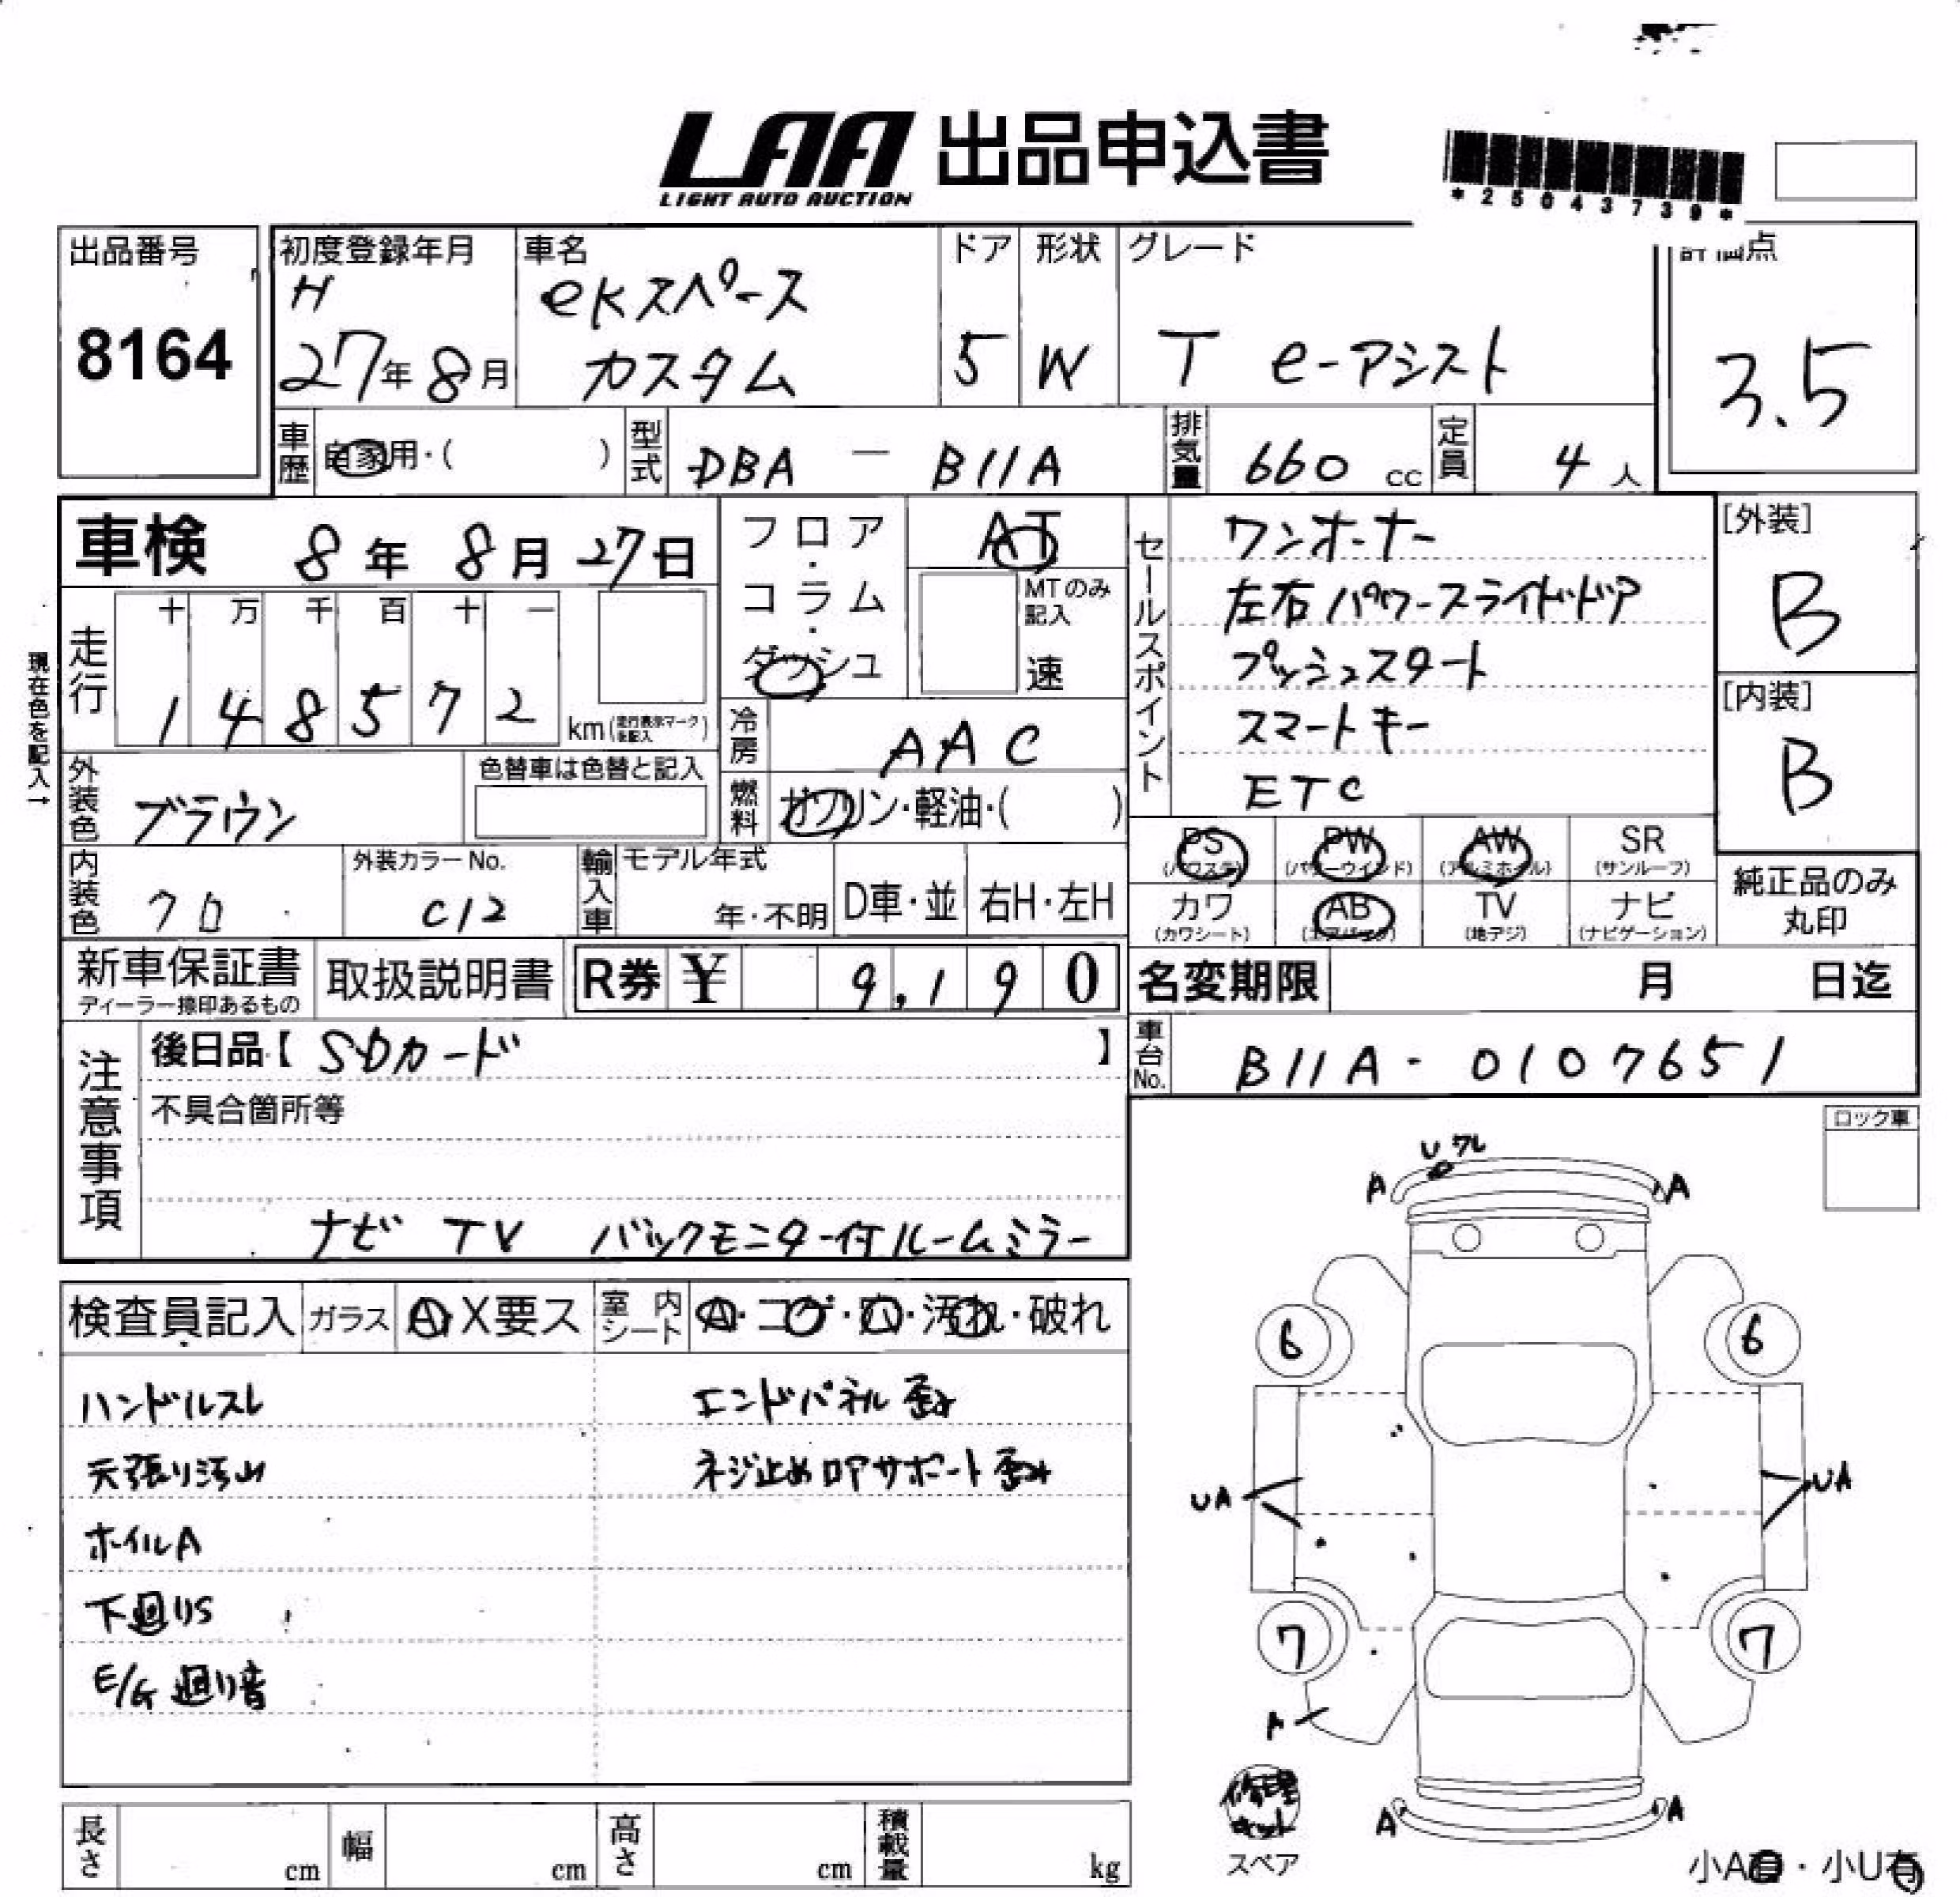 LAA 出品申込書
LIGHT AUTO AUCTION
*25043739*
出品番号 初度登録年月 車名 ドア 形状 グレード 評価点
8164
H
27年8月
eKスペース
カスタム
5 W T e-アシスト
3.5
車歴 自家用・( ) 型式 DBA — B11A 排気量 660 cc 定員 4人
車検 8年8月27日
フロア・コラム・ダッシュ
AT
MTのみ記入
速
セールスポイント
ワンオーナー
左右パワースライドドア
プッシュスタート
スマートキー
ETC
[外装]
B
[内装]
B
現在色を記入→
走行 十 万 千 百 十 一
1 4 8 5 7 2 km(走行表示マークを記入)
冷房 AAC
外装色 ブラウン 色替車は色替と記入
燃料 ガソリン・軽油・( )
内装色 クロ 外装カラーNo. C12
輸入車 モデル年式 年・不明 D車・並 右H・左H
PS (パワステ) PW (パワーウインド) AW (アルミホイル) SR (サンルーフ)
カワ (カワシート) AB (エアバック) TV (地デジ) ナビ (ナビゲーション)
純正品のみ
丸印
新車保証書 ディーラー捺印あるもの 取扱説明書 R券 ¥ 9,190
名変期限 月 日迄
車台No. B11A - 0107651
注意事項
後日品【 SDカード 】
不具合箇所等
ナビ TV バックモニター付ルームミラー
ロック車
検査員記入 ガラス A・X要ス 室内シート A・コゲ・穴・汚れ・破れ
ハンドルスレ エンドパネル歪み
天張り汚れ ネジ止めロアサポート歪み
ホイルA
下廻りS
E/G廻り音
U ワレ
A A
6 6
UA UA
7 7
A
A A
修理キット
スペア
小A有・小U有
長さ cm 幅 cm 高さ cm 積載量 kg